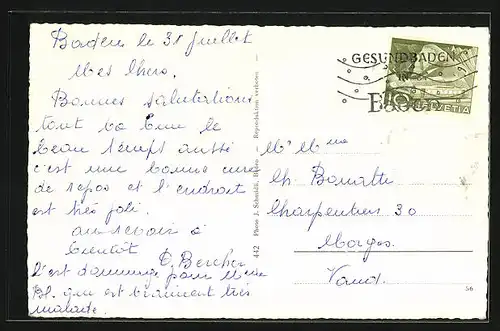 Baden le 31 Juillet
Mes chers.
Bonnes salutations
tout va bien le
beau temps aussi
c'est une bonne cure
de repos et l'endroit
est très joli.
au revoir à
bientôt
C'est dommage pour
Bl. qui est vraiment très
malade.
442 Photo J. Schmidli, Reproduktion verboten
GESUNDBADEN
IN
HELVETIA
Mr Mme
Ch
Charpentiers 30
Morges.
Vaud.
56